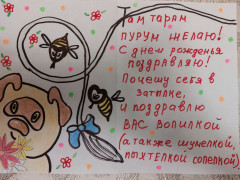 Там тарам
пурум желаю!
С днем рожденья
поздравляю!
Почешу себя в
затылке,
И поздравлю
ВАС вопилкой
(а также шумелкой,
пыхтелкой сопелкой)